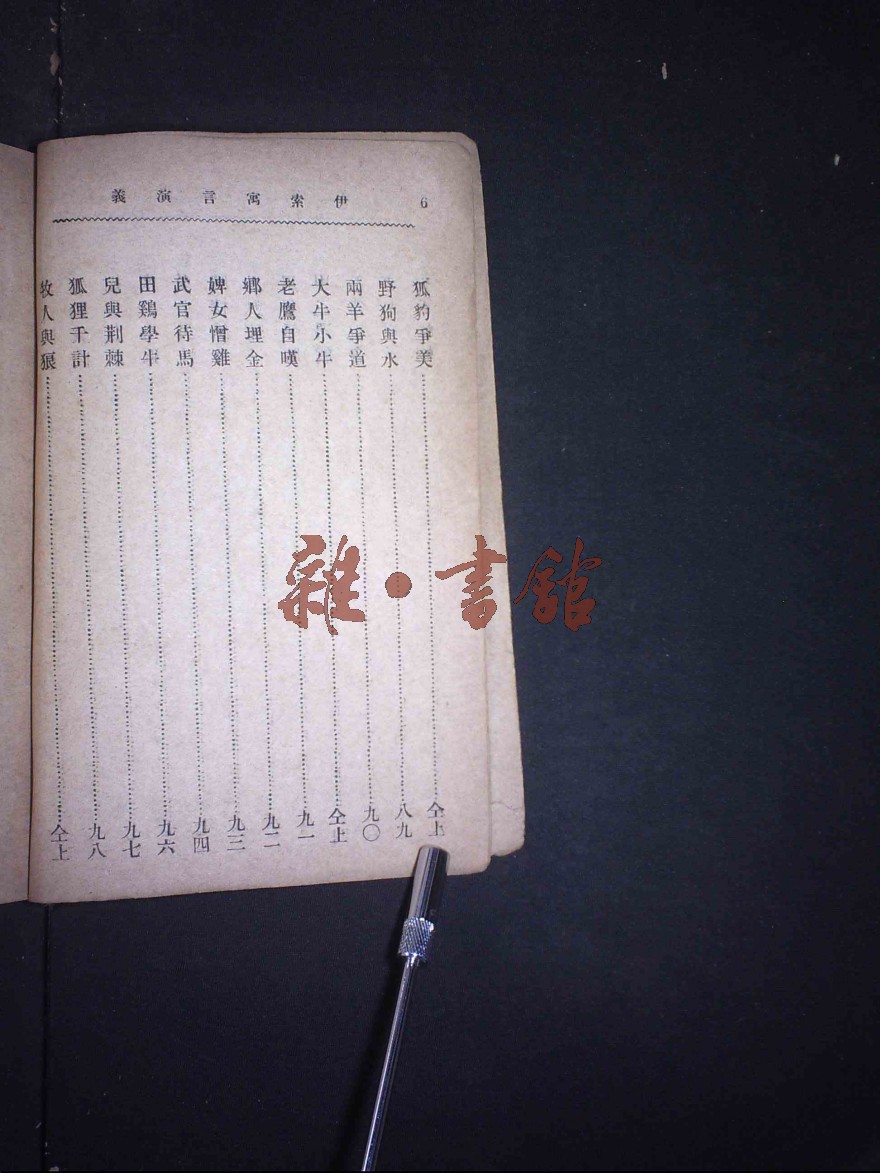 伊索寓言演義 6
狐豹爭美 仝上
野狗與水 八九
兩羊爭道 九〇
大牛小牛 仝上
老鷹自嘆 九一
鄉人埋金 九二
婢女憎雞 九三
武官待馬 九四
田鷄學牛 九六
兒與荆棘 九七
狐狸千計 九八
牧人與狼 仝上
雜•書館